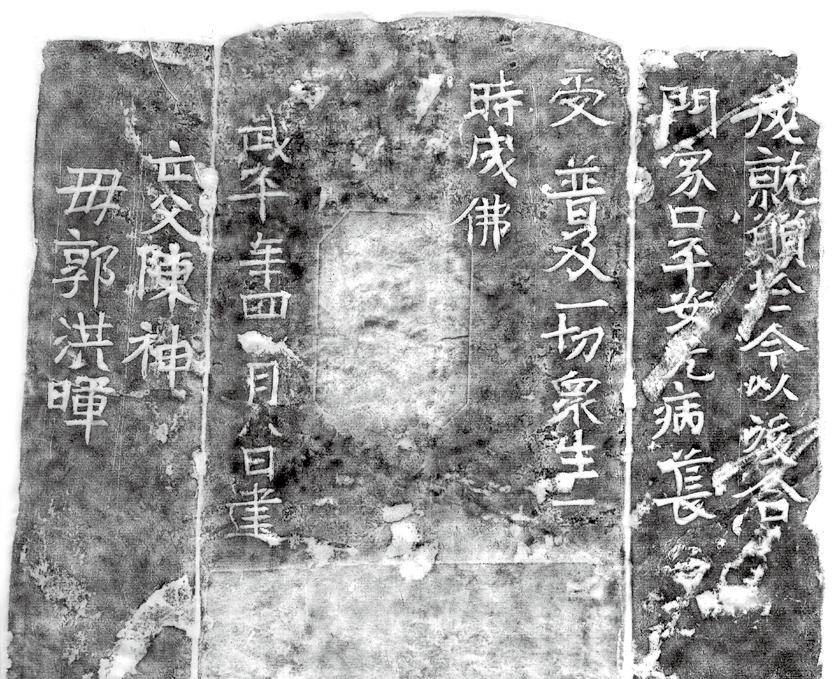 成就願於今以後合
門家口平安无病長
受 普及一切眾生一
時成佛
武平 年四月八日建
亡父陳神
毋郭洪暉